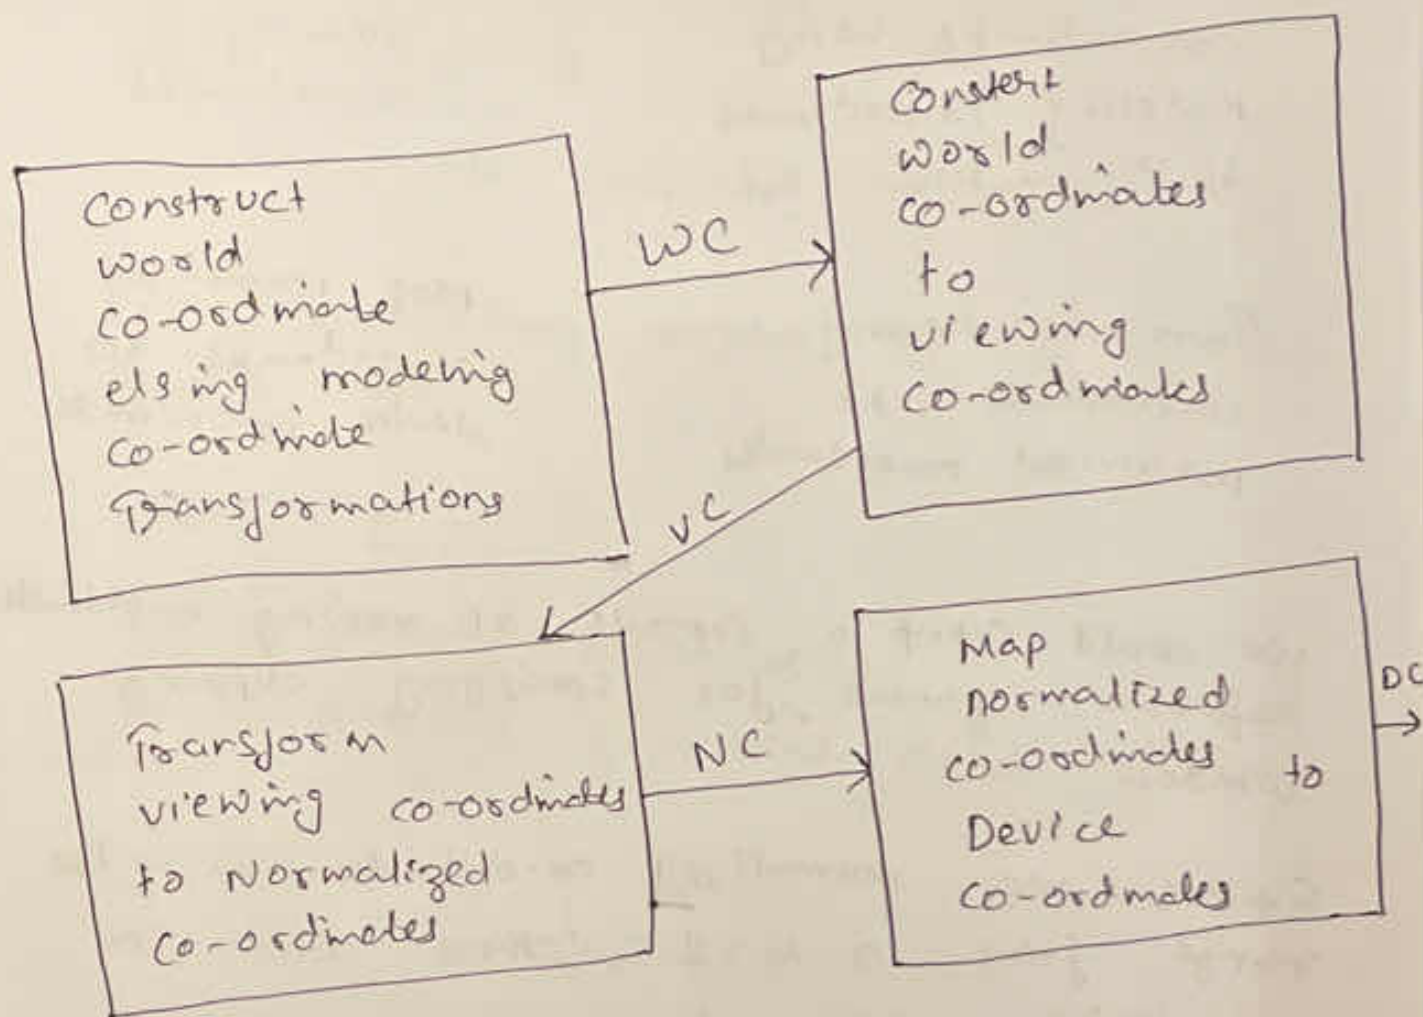 Construct
world
co-ordinate
elsing modeling
co-ordinate
Transformations
WC
Constert
world
co-ordinates
to
viewing
co-ordinates
VC
Transform
viewing co-ordinates
to Normalized
co-ordinates
NC
Map
normalized
co-ordinates to
Device
co-ordinates
DC